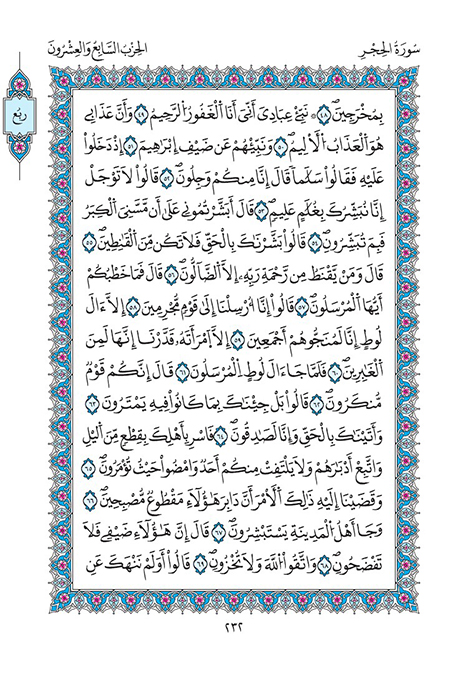 سُورَةُ الحِجْرِ
الحِزْبُ السَّابِعُ وَالعِشْرُونَ
ربع
بِمُخْرَجِينَۖ ٤٨ ۞ نَبِّےْ عِبَادِيَ أَنِّيَ أَنَا اَ۬لْغَفُورُ اُ۬لرَّحِيمُ ٤٩ وَأَنَّ عَذَابِي
هُوَ اَ۬لْعَذَابُ اُ۬لْأَلِيمُۖ ٥٠ وَنَبِّئْهُمْ عَن ضَيْفِ إِبْرَٰهِيمَۖ ٥١ إِذْ دَخَلُواْ
عَلَيْهِ فَقَالُواْ سَلَٰماٗ قَالَ إِنَّا مِنكُمْ وَجِلُونَۖ ٥٢ قَالُواْ لَا تَوْجَلِ
إِنَّا نُبَشِّرُكَ بِغُلَٰمٍ عَلِيمٖۖ ٥٣ قَالَ أَبَشَّرْتُمُونِي عَلَىٰ أَن مَّسَّنِيَ اَ۬لْكِبَرُ
فَبِمَ تُبَشِّرُونِۖ ٥٤ قَالُواْ بَشَّرْنَٰكَ بِالْحَقِّ فَلَا تَكُن مِّنَ اَ۬لْقَٰنِطِينَۖ ٥٥
قَالَ وَمَنْ يَّقْنَطُ مِن رَّحْمَةِ رَبِّهِۦ إِلَّا اَ۬لضَّآلُّونَۖ ٥٦ قَالَ فَمَا خَطْبُكُمْ
أَيُّهَا اَ۬لْمُرْسَلُونَۖ ٥٧ قَالُواْ إِنَّا أُرْسِلْنَا إِلَىٰ قَوْمٖ مُّجْرِمِينَ ٥٨ إِلَّا ءَالَ
لُوطٍ إِنَّا لَمُنَجُّوهُمْ أَجْمَعِينَ ٥٩ إِلَّا اَ۪مْرَأَتَهُۥ قَدَّرْنَا إِنَّهَا لَمِنَ
اَ۬لْغَٰبِرِينَۖ ٦٠ فَلَمَّا جَاءَ الَ لُوطٍ اِ۬لْمُرْسَلُونَ ٦١ قَالَ إِنَّكُمْ قَوْمٞ
مُّنكَرُونَۖ ٦٢ قَالُواْ بَلْ جِئْنَٰكَ بِمَا كَانُواْ فِيهِ يَمْتَرُونَ ٦٣
وَأَتَيْنَٰكَ بِالْحَقِّ وَإِنَّا لَصَٰدِقُونَۖ ٦٤ فَاسْرِ بِأَهْلِكَ بِقِطْعٖ مِّنَ اَ۬ليْلِ
وَاتَّبِعَ اَدْبَٰرَهُمْ وَلَا يَلْتَفِتْ مِنكُمْ أَحَدٞ وَامْضُواْ حَيْثُ تُؤْمَرُونَۖ ٦٥
وَقَضَيْنَا إِلَيْهِ ذَٰلِكَ اَ۬لْأَمْرَ أَنَّ دَابِرَ هَٰؤُلَاءِ مَقْطُوعٞ مُّصْبِحِينَۖ ٦٦
وَجَا أَهْلُ اُ۬لْمَدِينَةِ يَسْتَبْشِرُونَۖ ٦٧ قَالَ إِنَّ هَٰؤُلَاءِ ضَيْفِي فَلَا
تَفْضَحُونِۖ ٦٨ وَاتَّقُواْ اُ۬للَّهَ وَلَا تُخْزُونِۖ ٦٩ قَالُواْ أَوَلَمْ نَنْهَكَ عَنِ
٢٣٢